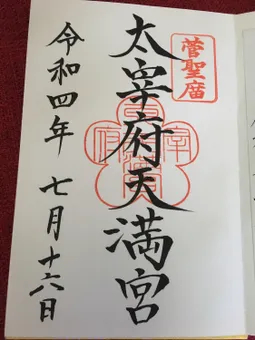 菅聖庿
太宰府天満宮
令和四年 七月十六日